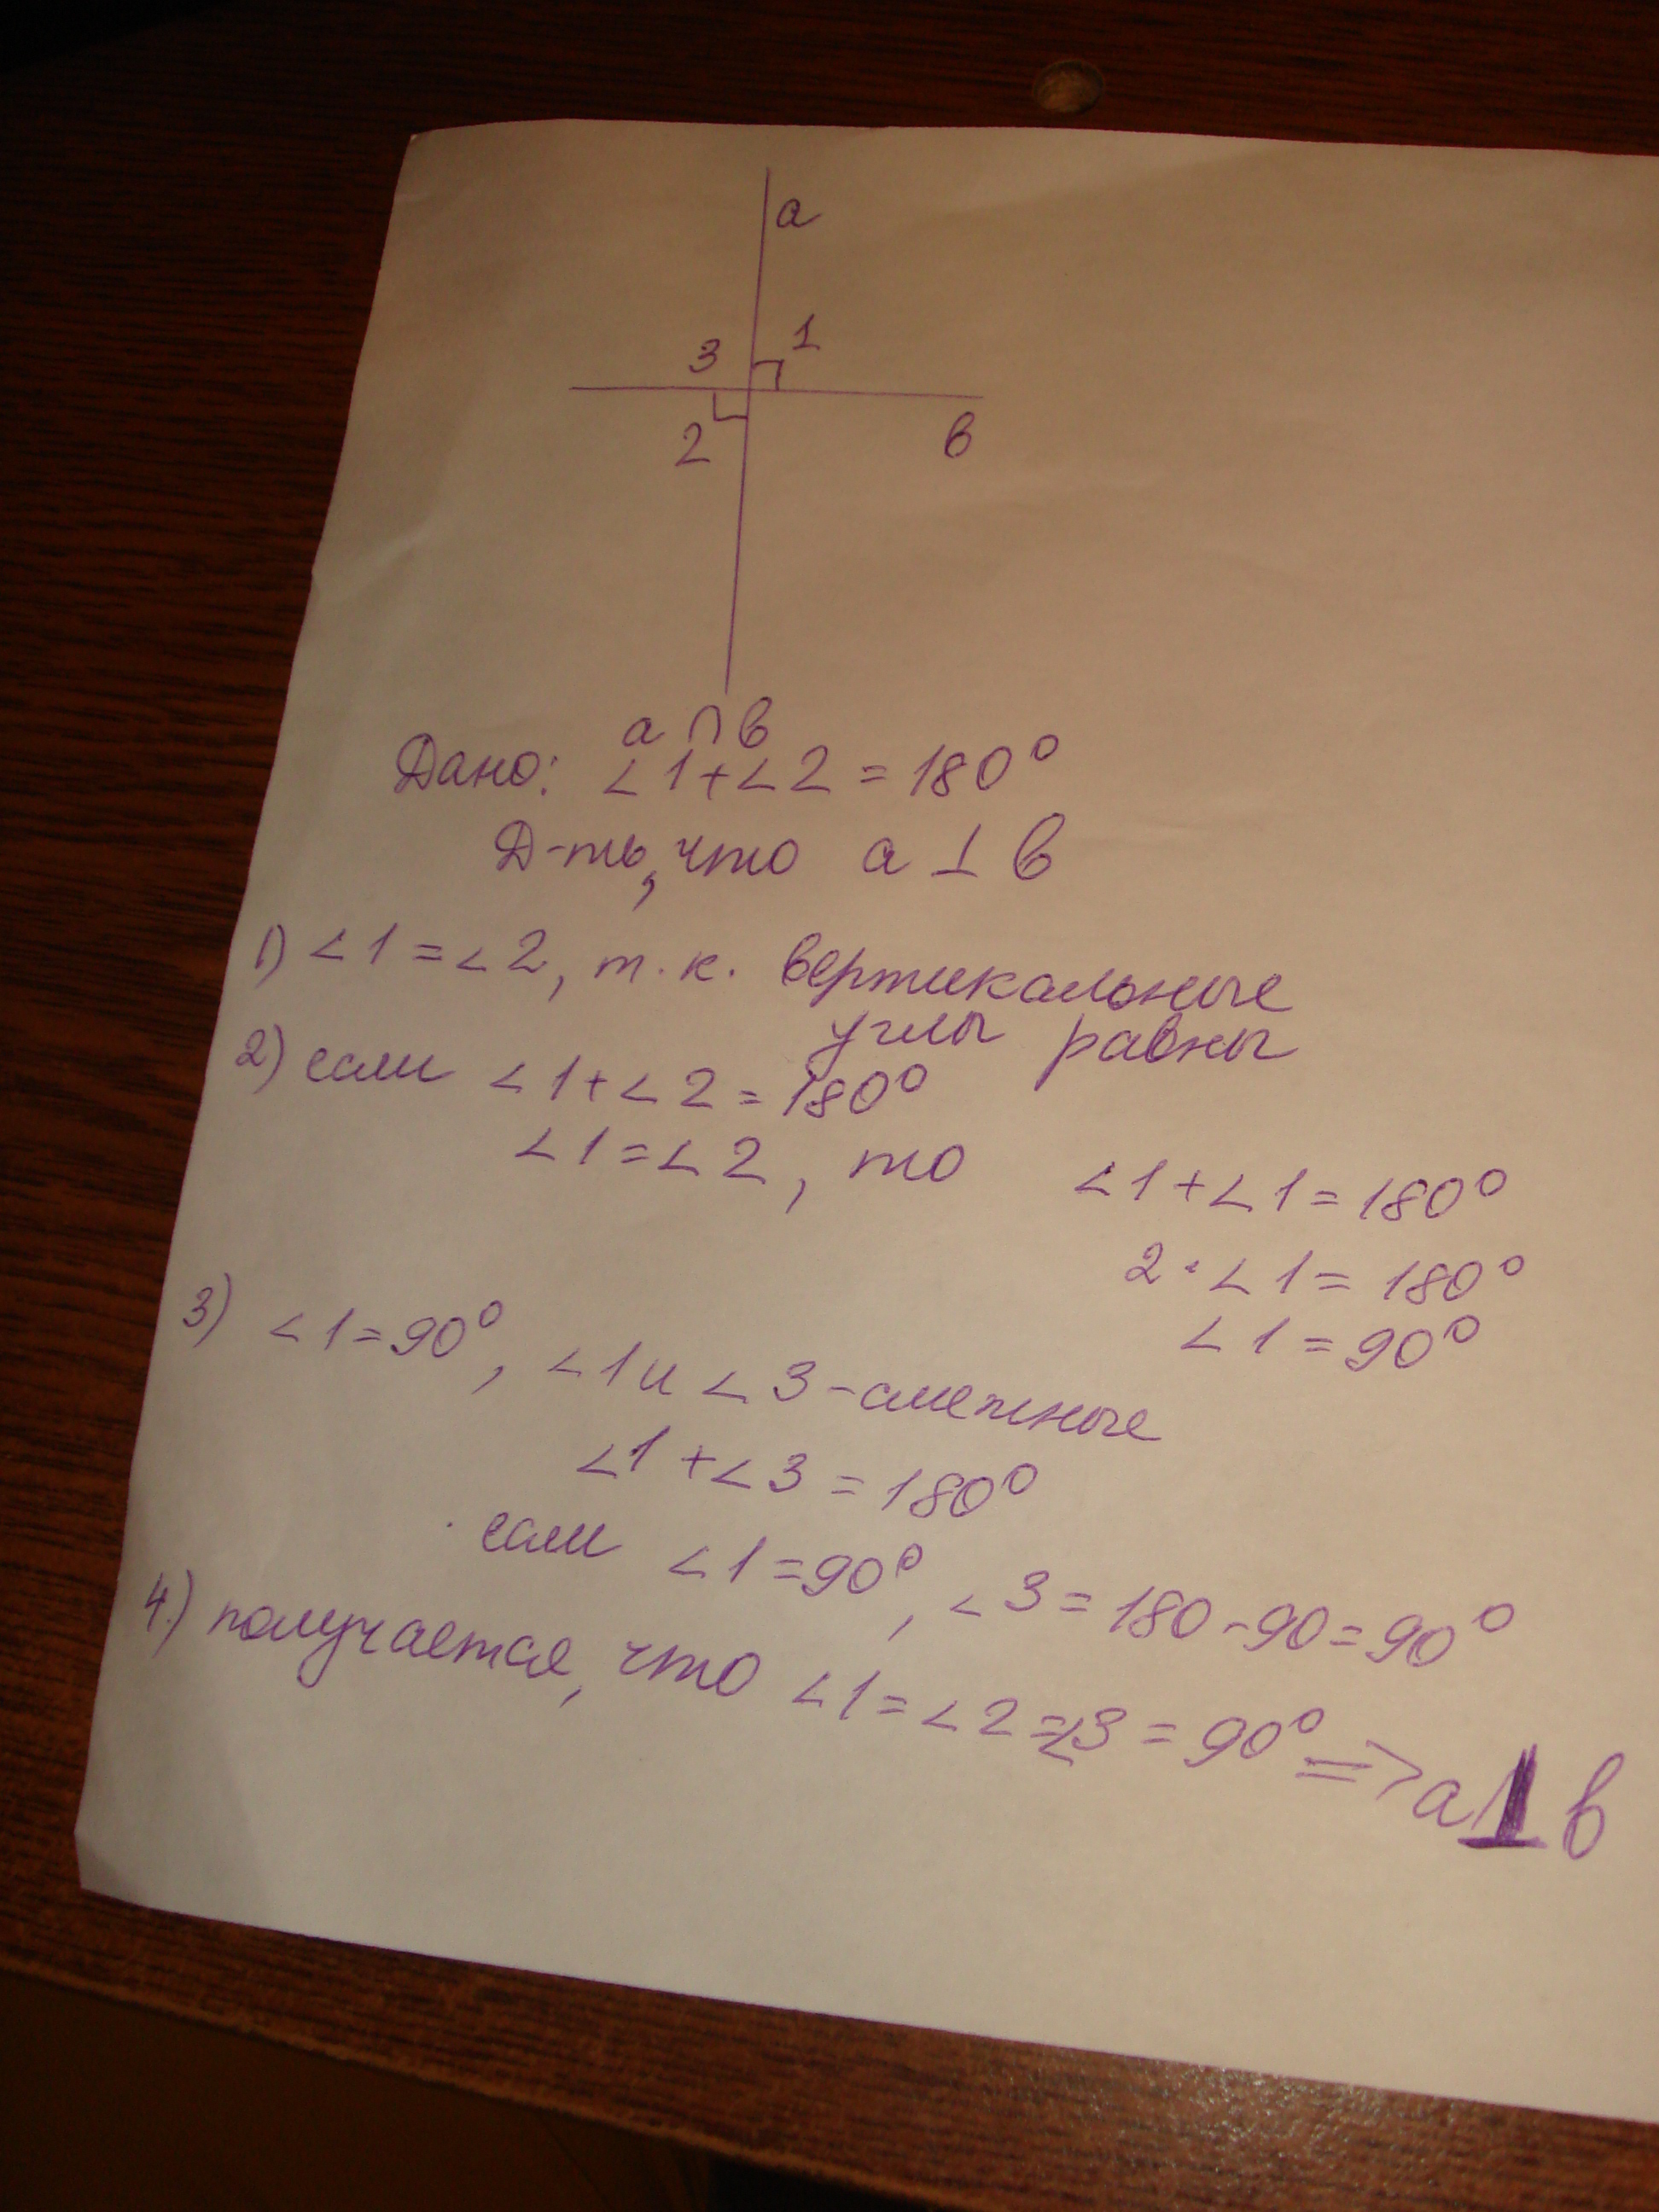 a
3 1
2 в
a ∩ в
Дано: ∠1+∠2=180°
Д-ть, что a ⊥ в
1) ∠1=∠2, т.к. вертикальные
углы равны
2) если ∠1+∠2=180°
∠1=∠2, то ∠1+∠1=180°
2·∠1=180°
∠1=90°
3) ∠1=90°, ∠1 и ∠3-смежные
∠1+∠3=180°
если ∠1=90°, ∠3=180-90=90°
4.) получается, что ∠1=∠2=∠3=90° => a ⊥ b